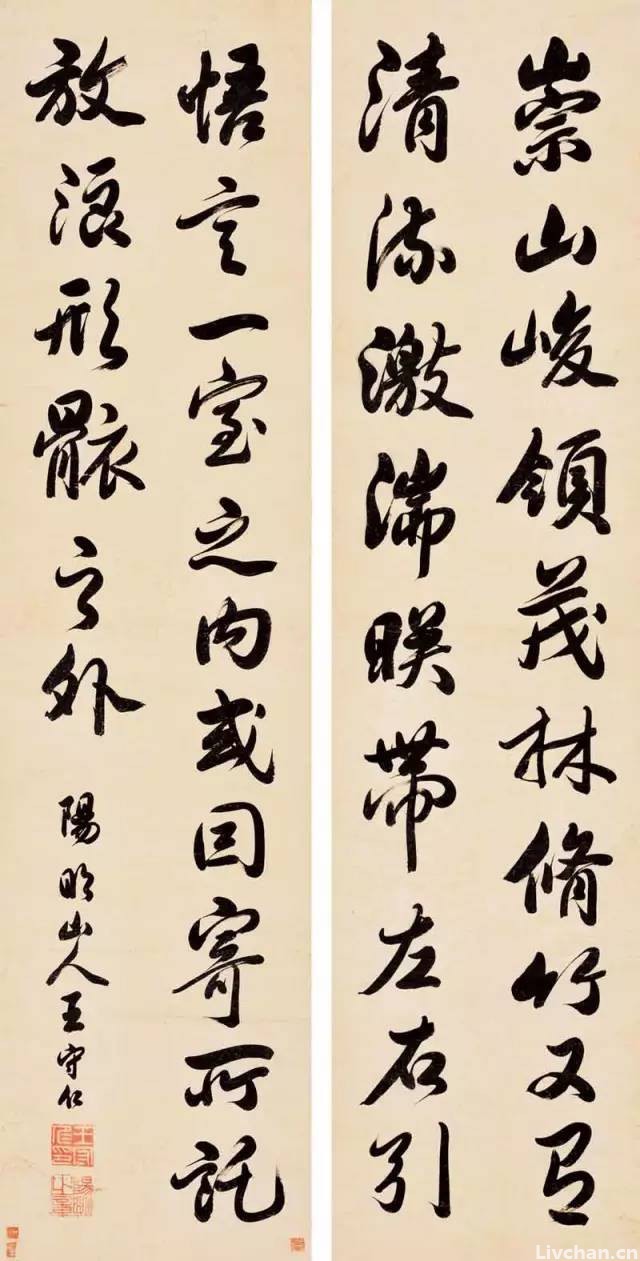 崇山峻領茂林脩竹又有
清流激湍暎帶左右引
悟言一室之内或因寄所託
放浪形骸之外
陽明山人王守仁
Livchan.cn